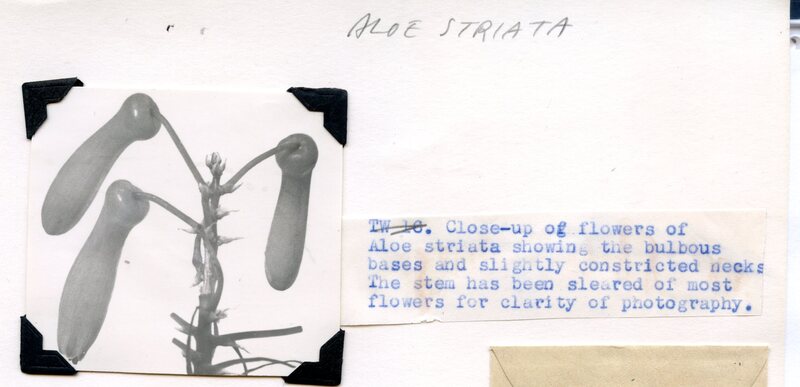 ALOE STRIATA
TW 16. Close-up of flowers of
Aloe striata showing the bulbous
bases and slightly constricted necks
The stem has been sleared of most
flowers for clarity of photography.